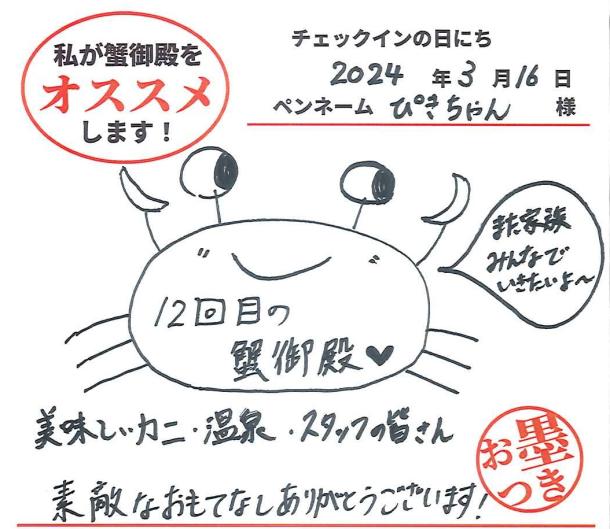 私が蟹御殿を
オススメ
します！
チェックインの日にち
2024 年 3 月 16 日
ペンネーム ぴきちゃん 様
また家族
みんなで
いきたいよ〜
12回目の
蟹御殿♥
美味しいカニ・温泉・スタッフの皆さん
素敵なおもてなしありがとうございます!
お墨つき